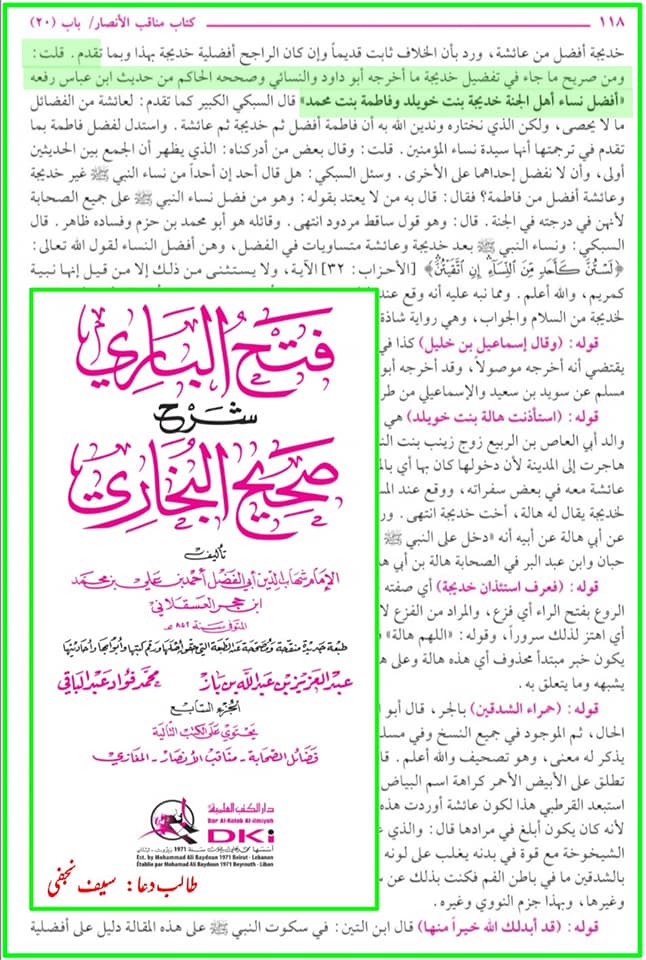 ١١٨
كتاب مناقب الأنصار/ باب (٢٠)
خديجة أفضل من عائشة، ورد بأن الخلاف ثابت قديماً وإن كان الراجح أفضلية خديجة بهذا وبما تقدم . قلت :
ومن صريح ما جاء في تفضيل خديجة ما أخرجه أبو داود والنسائي وصححه الحاكم من حديث ابن عباس رفعه
«أفضل نساء أهل الجنة خديجة بنت خويلد وفاطمة بنت محمد» قال السبكي الكبير كما تقدم : لعائشة من الفضائل
ما لا يحصى، ولكن الذي نختاره وندين الله به أن فاطمة أفضل ثم خديجة ثم عائشة . واستدل لفضل فاطمة بما
تقدم في ترجمتها أنها سيدة نساء المؤمنين . قلت : وقال بعض من أدركناه : الذي يظهر أن الجمع بين الحديثين
أولى، وأن لا نفضل إحداهما على الأخرى . وسئل السبكي : هل قال أحد إن أحداً من نساء النبي ﷺ غير خديجة
وعائشة أفضل من فاطمة؟ فقال : قال به من لا يعتد بقوله : وهو من فضل نساء النبي ﷺ على جميع الصحابة
لأنهن في درجته في الجنة . قال : وهو قول ساقط مردود انتهى . وقائله هو أبو محمد بن حزم وفساده ظاهر . قال
السبكي : ونساء النبي ﷺ بعد خديجة وعائشة متساويات في الفضل، وهن أفضل النساء لقول الله تعالى :
﴿لَسْتُنَّ كَأَحَدٍ مِّنَ النِّسَاءِ إِنِ اتَّقَيْتُنَّ﴾ [الأحزاب : ٣٢] الآية، ولا يستثنى من ذلك إلا من قيل إنها نبية
كمريم، والله أعلم . ومما نبه عليه أنه وقع عند
لخديجة من السلام والجواب، وهي رواية شاذة
قوله : (وقال إسماعيل بن خليل) كذا في
يقتضي أنه أخرجه موصولاً، وقد أخرجه أبو
مسلم عن سويد بن سعيد والإسماعيلي من طر
قوله : (استأذنت هالة بنت خويلد) هي
والد أبي العاص بن الربيع زوج زينب بنت الن
هاجرت إلى المدينة لأن دخولها كان بها أي بالم
عائشة معه في بعض سفراته، ووقع عند المس
لخديجة يقال له هالة، أخت خديجة انتهى . ور
عن أبي هالة عن أبيه أنه «دخل على النبي ﷺ
حبان وابن عبد البر في الصحابة هالة بن أبي ه
قوله : (فعرف استئذان خديجة) أي صفته
الروع بفتح الراء أي فزع، والمراد من الفزع لا
أي اهتز لذلك سروراً، وقوله : «اللهم هالة»
يكون خبر مبتدأ محذوف أي هذه هالة وعلى ه
يشبهه وما يتعلق به .
قوله : (حمراء الشدقين) بالجر، قال أبو ا
الحال، ثم الموجود في جميع النسخ وفي مسلم
يذكر له معنى، وهو تصحيف والله أعلم . قا
تطلق على الأبيض الأحمر كراهة اسم البياض
استبعد القرطبي هذا لكون عائشة أوردت هذه
لأنه كان يكون أبلغ في مرادها قال : والذي ع
الشيخوخة مع قوة في بدنه يغلب على لونه
بالشدقين ما في باطن الفم فكنت بذلك عن س
وغيرها، وبهذا جزم النووي وغيره .
قوله : (قد أبدلك الله خيراً منها) قال ابن التين : في سكوت النبي ﷺ على هذه المقالة دليل على أفضلية
فتح الباري
شرح
صحيح البخاري
تأليف
الإمام شهاب الدين أبي الفضل أحمد بن علي بن محمد
ابن حجر العسقلاني
المتوفى سنة ٨٥٢ هـ
عبد العزيز بن عبد الله بن باز
محمد فؤاد عبد الباقي
الجزء السابع
يحتوي على الكتب التالية
فضائل الصحابة - مناقب الأنصار - المغازي
دار الكتب العلمية
Dar Al-Kotob Al-ilmiyah
DKi
Est. by Mohammad Ali Baydoun 1971 Beirut - Lebanon
Établie par Mohamad Ali Baydoun 1971 Beyrouth - Liban
طالب دعا : سیف نجفی